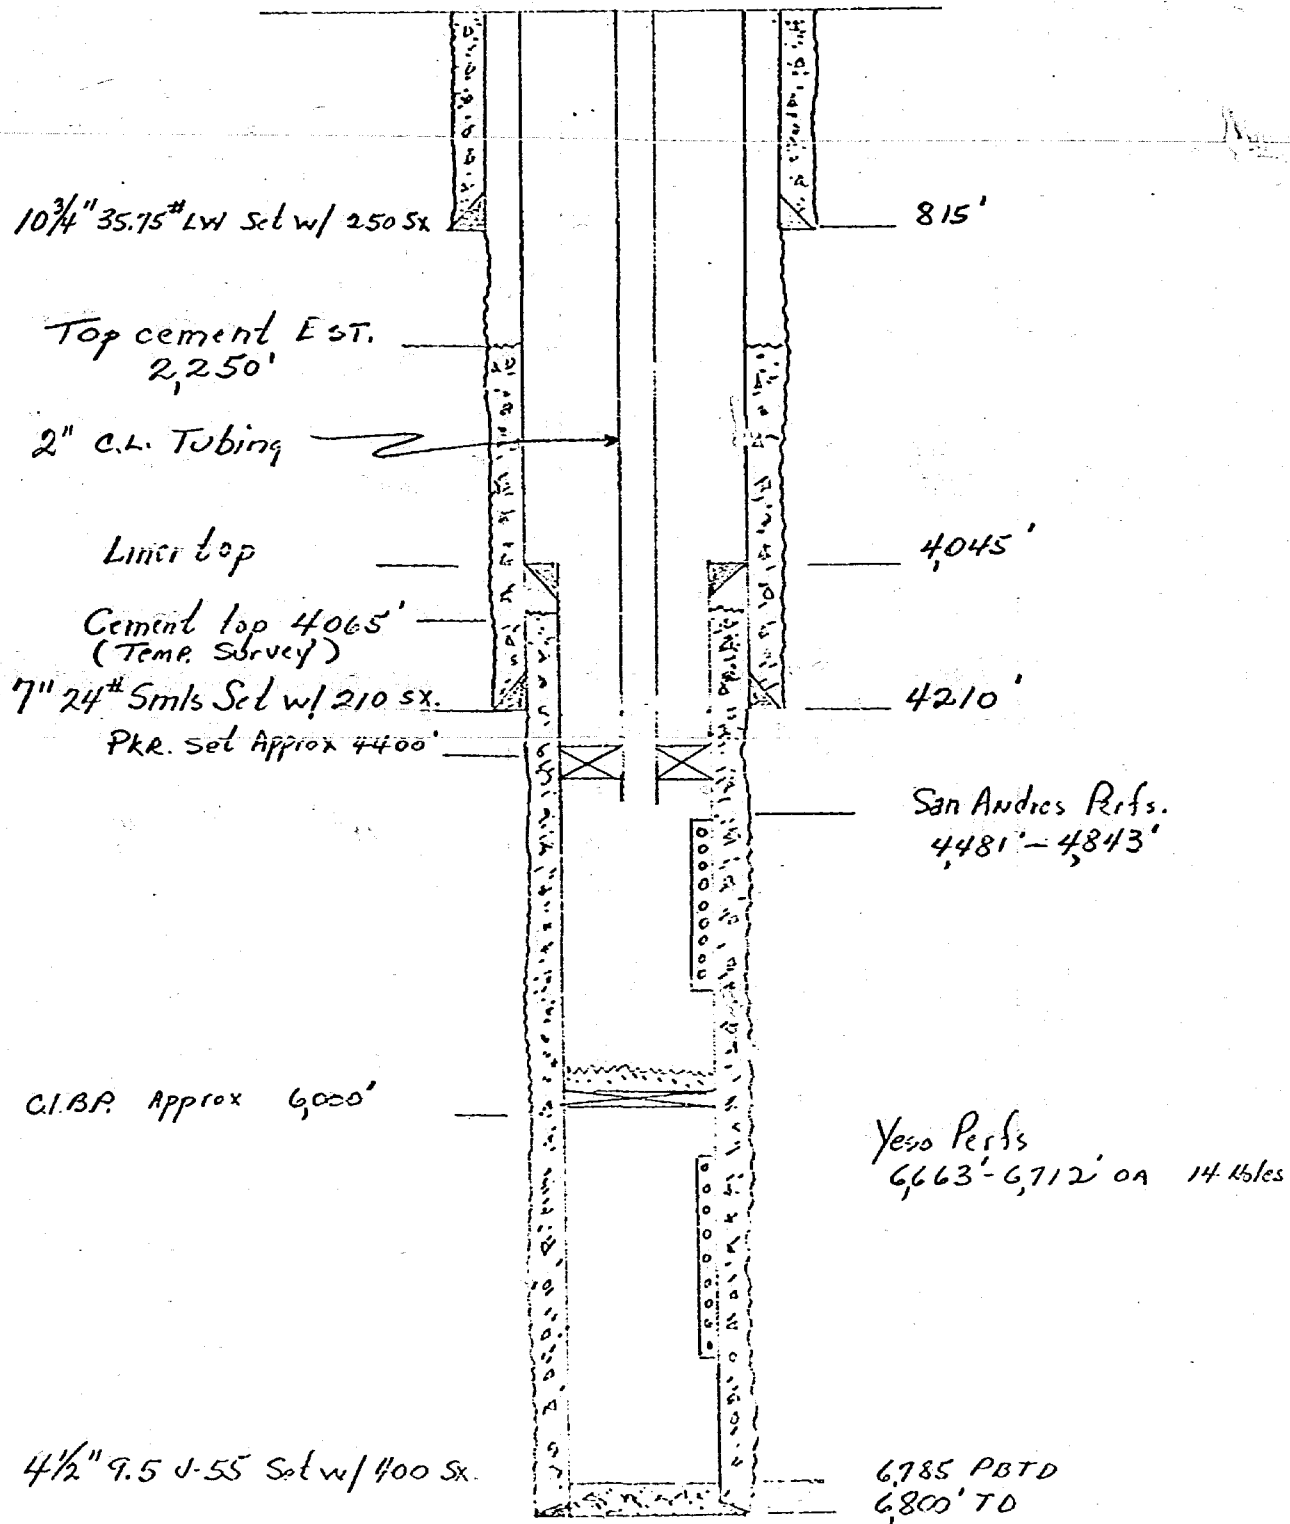 10 3/4" 35.75# LW Set w/ 250 Sx
815'
Top cement EST.
2,250'
2" C.L. Tubing
Liner top
4,045'
Cement top 4065'
(Temp. Survey)
7" 24# Smls Set w/ 210 sx.
4210'
PKR. set Approx 4400'
San Andres Perfs.
4,481'-4,843'
C.I.B.P. Approx 6,000'
Yeso Perfs
6,663'-6,712' OA 14 Holes
4 1/2" 9.5 J-55 Set w/ 400 Sx.
6,785 PBTD
6,800' TD